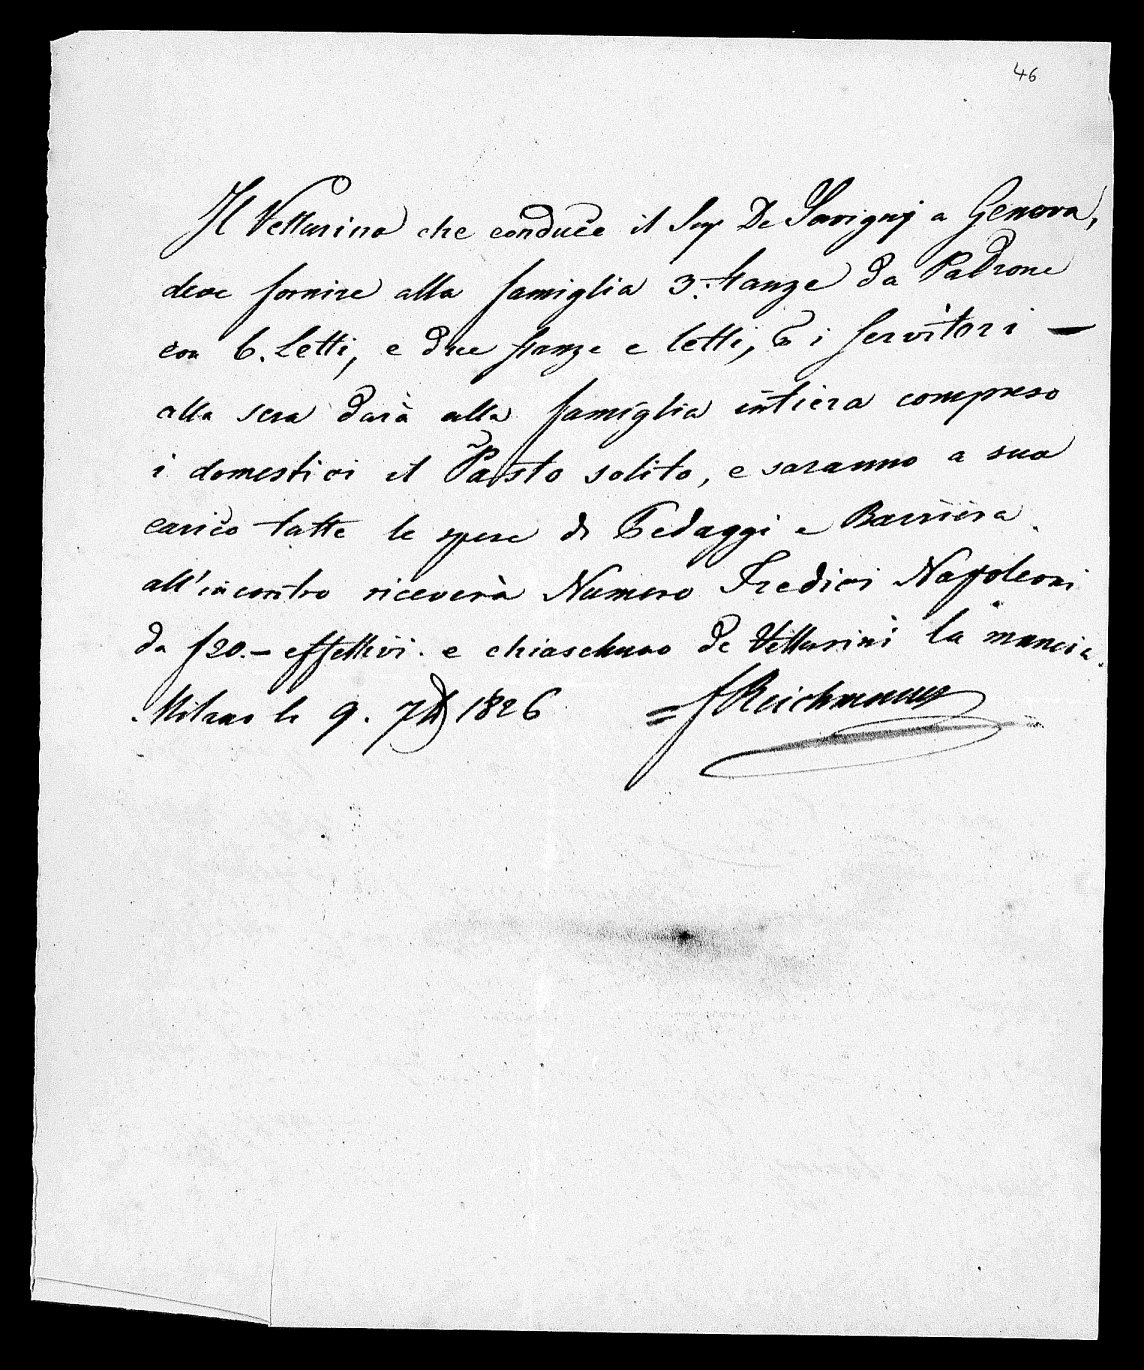 46
Il Vetturino che conduce il Sigr De Savigny a Genova,
deve fornire alla famiglia 3. stanze da Padrone
con 6. Letti, e due stanze e letti, i Servitori —
alla sera darà alla famiglia intiera compreso
i domestici il Pasto solito, e saranno a suo
carico tutte le spese di Pedaggi e Barriera.
all'incontro riceverà Numero Tredici Napoleoni
da f20.— effettivi. e chiascheuno de Vetturini la mancia.
Milano li 9. 7b 1826 = f Reichmann